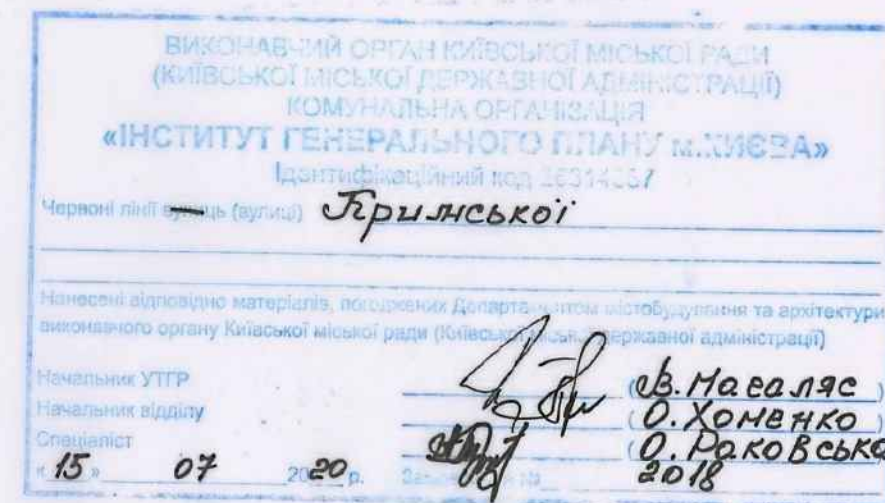 ВИКОНАВЧИЙ ОРГАН КИЇВСЬКОЇ МІСЬКОЇ РАДИ
(КИЇВСЬКОЇ МІСЬКОЇ ДЕРЖАВНОЇ АДМІНІСТРАЦІЇ)
КОМУНАЛЬНА ОРГАНІЗАЦІЯ
«ІНСТИТУТ ГЕНЕРАЛЬНОГО ПЛАНУ м.КИЄВА»
Ідентифікаційний код
Червоні лінії вулиць (вулиці) Кримської
Нанесені відповідно матеріалів, погоджених Департаментом містобудування та архітектури
виконавчого органу Київської міської ради (Київської міської державної адміністрації)
Начальник УТГР (В.
Начальник відділу (О. Хоменко)
Спеціаліст (О. Раковська
«15» 07 2020 р. 2018